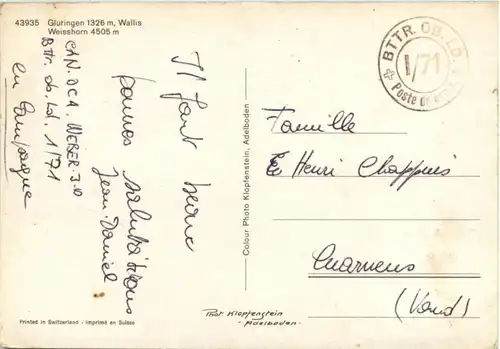 43935 Gluringen 1326 m, Wallis
Weisshorn 4505 m
CAN. DCA. WEBER. J.D
Bttr. ob. ld. 1/71
en Campagne
Il fait beau
bonnes salutations
Jean-Daniel
Colour Photo Klopfenstein, Adelboden
BTTR. OB. LD.
I/71
Poste de
Famille
Henri Chappuis
Cuarnens
(Vaud)
Printed in Switzerland - Imprimé en Suisse
Phot. Klopfenstein
- Adelboden -